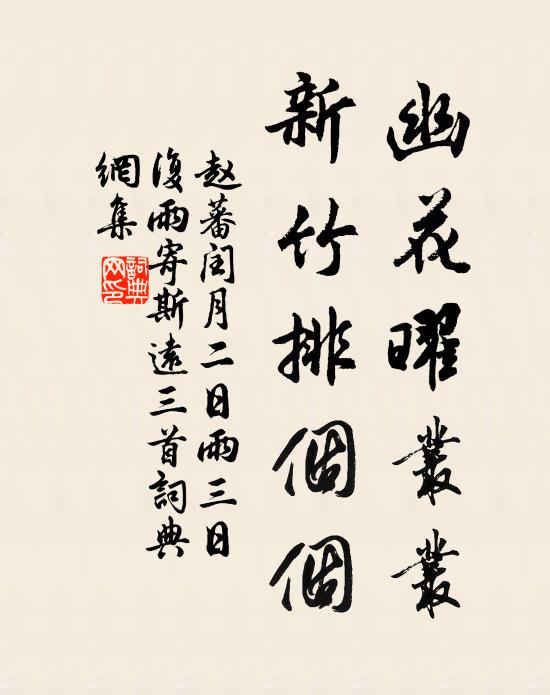 幽花曜叢叢
新竹排個個
赵蕃闰月二日雨三日
復雨寄斯遠三首詞典
網集
詞典
网印